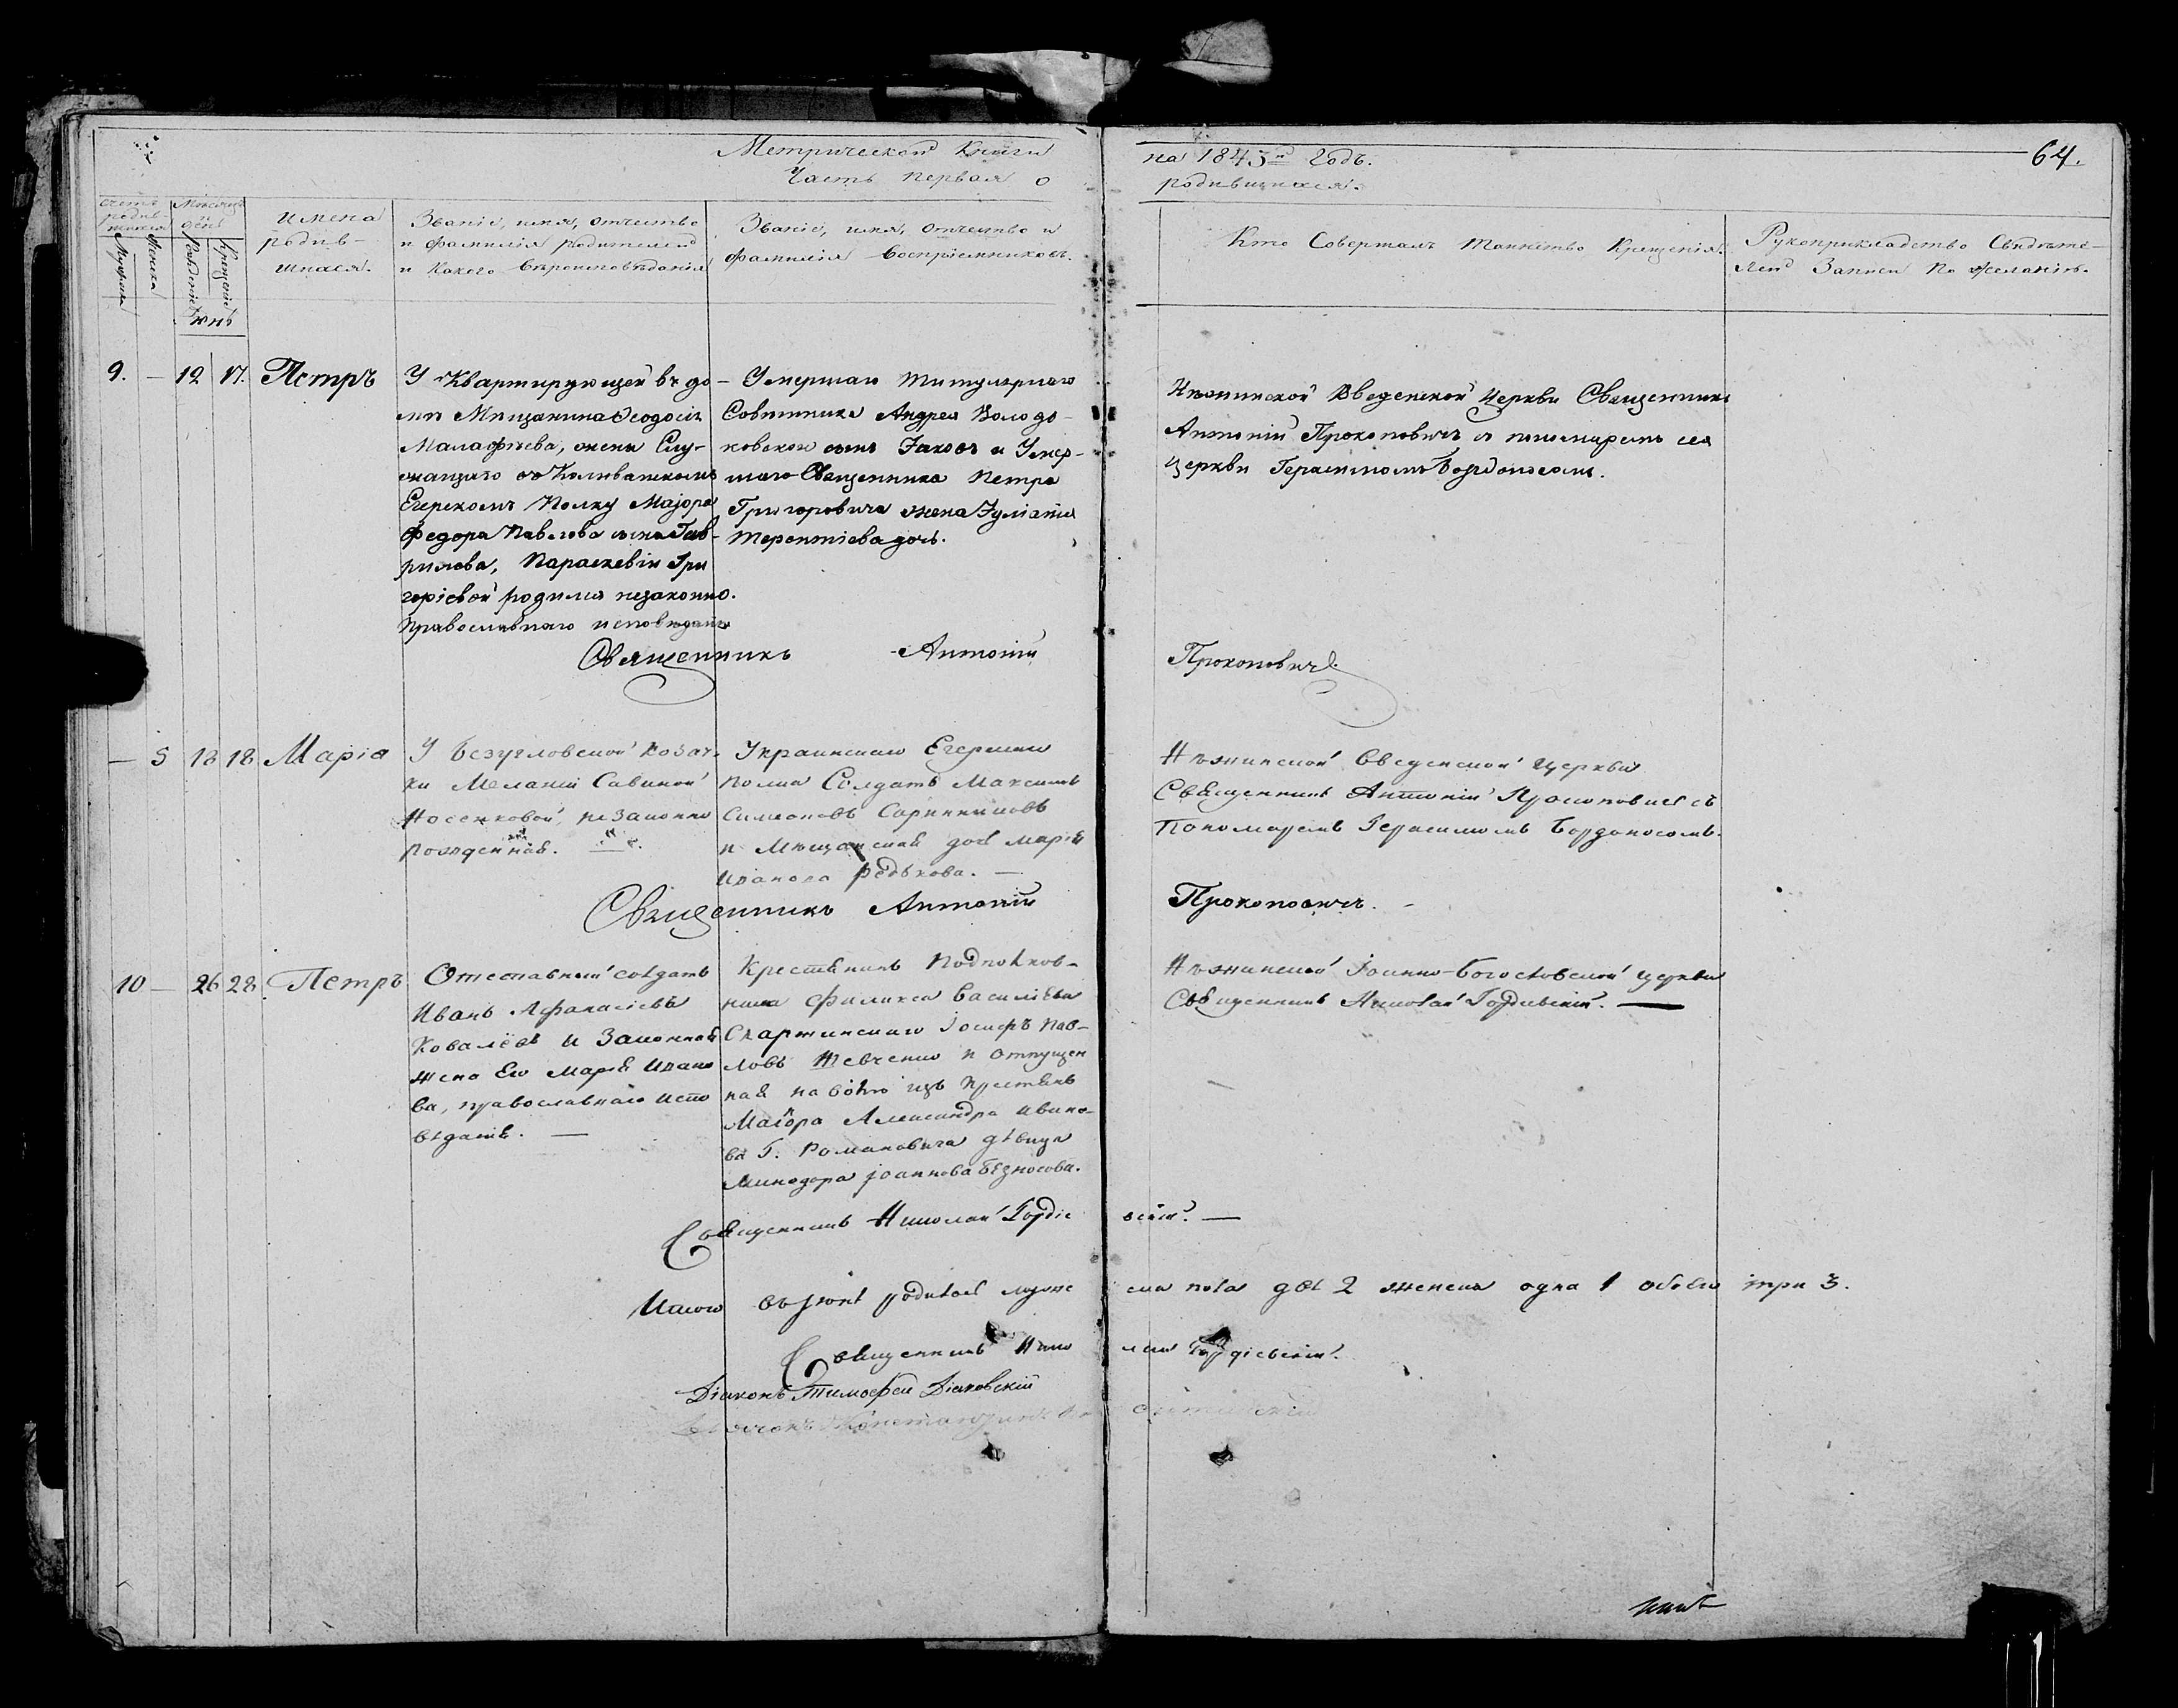 Метрической Книги на 1843й Годъ. 64.
Часть первая о родившихся.
счетъ родив-шихся
Мужеска
Женска
Мѣсяцъ и день
Рожденія
Крещенія
имена родив-шихся.
Званіе, имя, отчество
и фамилія родителей
и какого вѣроисповѣданія
Званіе, имя, отчество и
фамилія воспріемниковъ.
Кто Совершалъ Таинство Крещенія.
Рукоприкладство Свидѣте-
лей Записи по желанію.
9. — 12 17. Петръ
У Квартирующей въ до-
мѣ Мѣщанина Ѳеодосія
Малафѣева, жены Слу-
жащаго въ Колыванскомъ
Егерскомъ Полку Маіора
Федора Павлова сына Гав-
рилова, Параскевіи Гри
горіевой родился незаконно.
Православнаго исповѣданія
Умершаго Титулярнаго
Совѣтника Андрея Володо-
ковскаго сынъ Іаковъ и Умер-
шаго Священника Петра
Григоровича жена Іуліанія
Терентіева дочь.
Нѣжинской Введенской Церкви Священникъ
Антоній Прокоповичъ съ пономаремъ сея
церкви Герасимомъ Бордоносомъ.
Священникъ Антоній Прокоповичъ.
— 5 18 18 Марія
У Безугловской козач-
ки Меланіи Савиной
Носенковой, незаконно
рожденная.
Украинскаго Егерскаго
полка Солдатъ Максимъ
Симеоновъ
и Мѣщанская дочь Марія
Иванова Редькова. —
Нѣжинской Введенской церкви
Священникъ Антоній Прокоповичъ съ
Пономаремъ Герасимомъ Бордоносомъ.
Священникъ Антоній Прокоповичъ. -
10 — 26 28 Петръ
Отставный солдатъ
Иванъ Афанасіевъ
Ковалёвъ и Законная
жена Его Марія Ивано
ва, православнаго испо
вѣданія. —
Крестянинъ Подполков-
ника Филикса Василіева
Скаржинскаго Іосифъ Пав-
ловъ Шевченко и отпущен
ная на волю изъ крестянъ
Маіора Александра Ивано-
ва Г. Романовича дѣвица
Минодора Іоаннова Безносова.
Нѣжинской Іоанно-Богословской церкви
Священникъ Николай Гордіевскій. —
Священникъ Николай Гордіевскій. —
Итого въ Іюнѣ родилось мужеска пола два 2 женска одна 1 обоего три 3.
Священникъ Николай Гордіевскій.
Діаконъ Тимофей Діаковскій